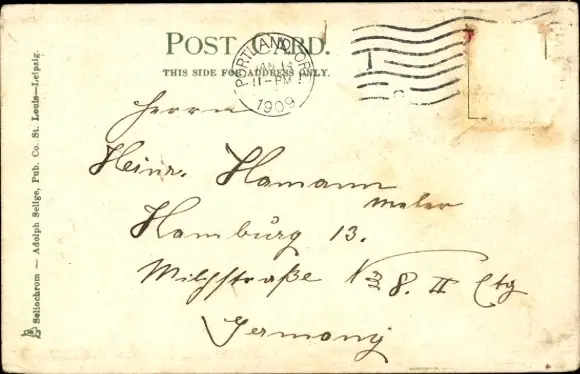 POST CARD.
THIS SIDE FOR ADDRESS ONLY.
PORTLAND, OR
JAN 14
11-PM
1909
Herrn
Heinr. Hamann
Maler
Hamburg 13.
Milchstraße No 8. II Etg
Germany
Seltochrom — Adolph Selige, Pub. Co. St. Louis—Leipzig.